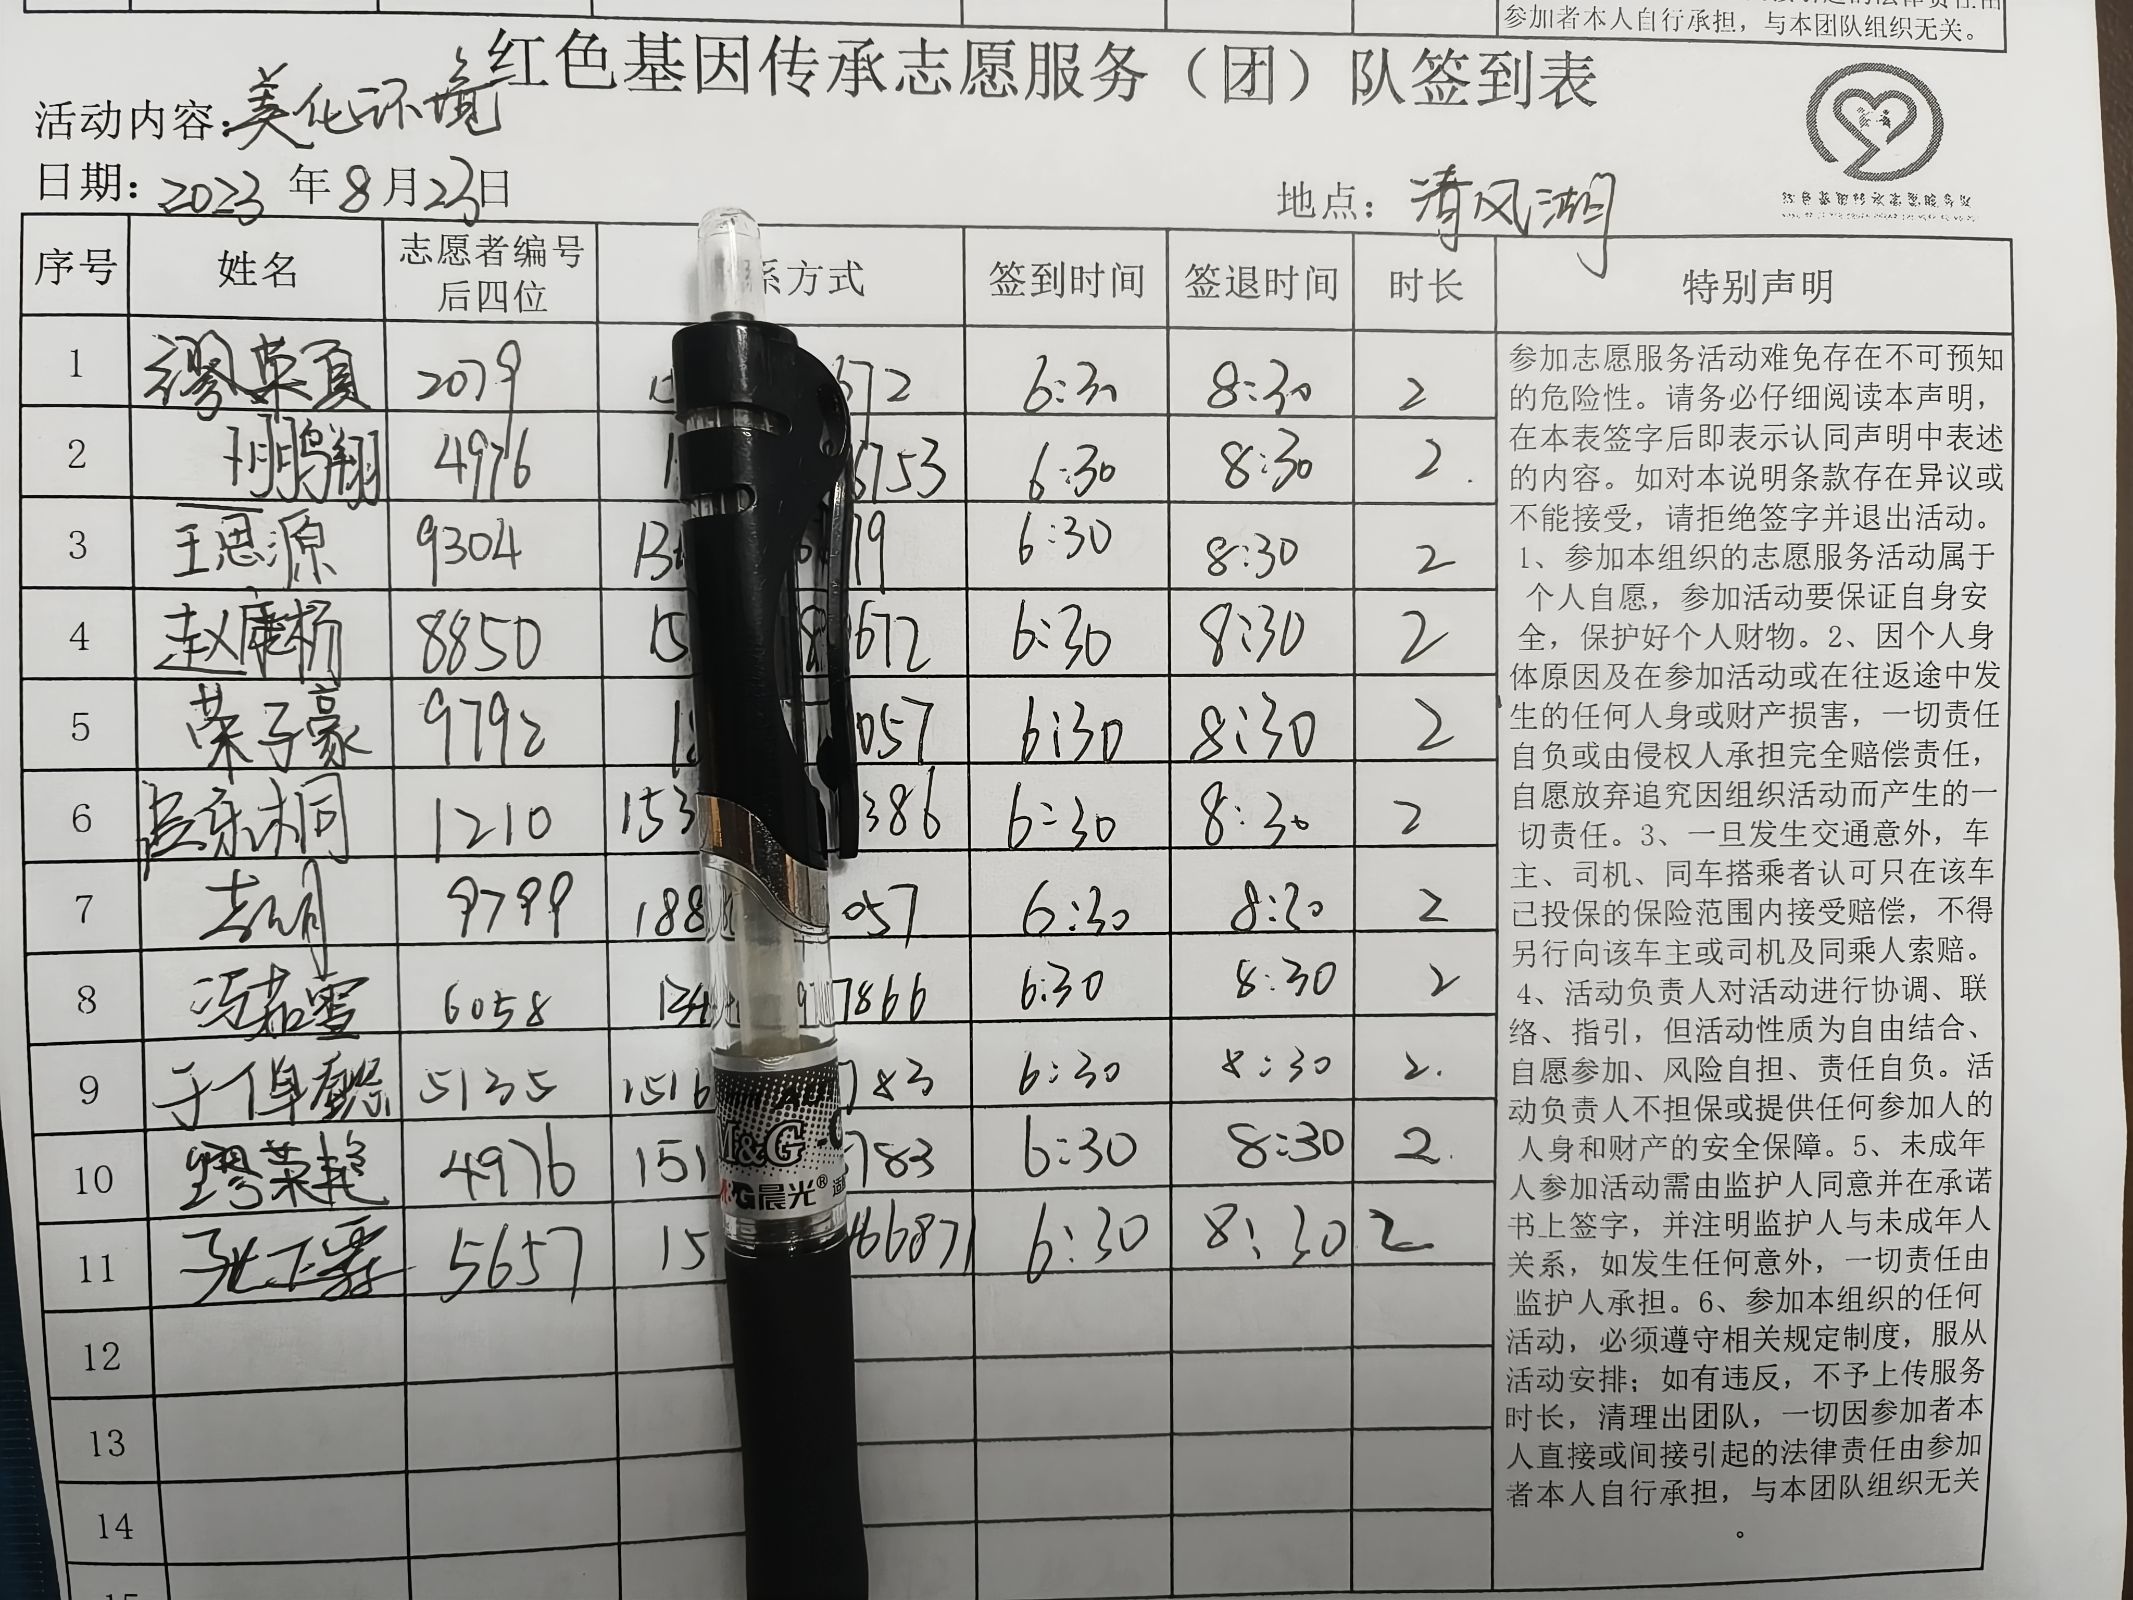 参加者本人自行承担，与本团队组织无关。
红色基因传承志愿服务（团）队签到表
活动内容：美化环境
日期：2023年8月23日
地点：清风湖
序号 姓名 志愿者编号后四位 系方式 签到时间 签退时间 时长 特别声明
1 2079 672 6:30 8:30 2
2 鹏翔 4976 6753 6:30 8:30 2
3 王思源 9304 13 19 6:30 8:30 2
4 赵康杨 8850 15 8 672 6:30 8:30 2
5 荣子豪 9792 1 057 6:30 8:30 2
6 1210 153 386 6:30 8:30 2
7 9799 188 057 6:30 8:30 2
8 6058 7866 6:30 8:30 2
9 5135 1516 783 6:30 8:30 2
10 4976 151 783 6:30 8:30 2
11 5657 15 66871 6:30 8:30 2
12
13
14
参加志愿服务活动难免存在不可预知
的危险性。请务必仔细阅读本声明，
在本表签字后即表示认同声明中表述
的内容。如对本说明条款存在异议或
不能接受，请拒绝签字并退出活动。
1、参加本组织的志愿服务活动属于
个人自愿，参加活动要保证自身安
全，保护好个人财物。2、因个人身
体原因及在参加活动或在往返途中发
生的任何人身或财产损害，一切责任
自负或由侵权人承担完全赔偿责任，
自愿放弃追究因组织活动而产生的一
切责任。3、一旦发生交通意外，车
主、司机、同车搭乘者认可只在该车
已投保的保险范围内接受赔偿，不得
另行向该车主或司机及同乘人索赔。
4、活动负责人对活动进行协调、联
络、指引，但活动性质为自由结合、
自愿参加、风险自担、责任自负。活
动负责人不担保或提供任何参加人的
人身和财产的安全保障。5、未成年
人参加活动需由监护人同意并在承诺
书上签字，并注明监护人与未成年人
关系，如发生任何意外，一切责任由
监护人承担。6、参加本组织的任何
活动，必须遵守相关规定制度，服从
活动安排；如有违反，不予上传服务
时长，清理出团队，一切因参加者本
人直接或间接引起的法律责任由参加
者本人自行承担，与本团队组织无关
。
M&G
M&G晨光®